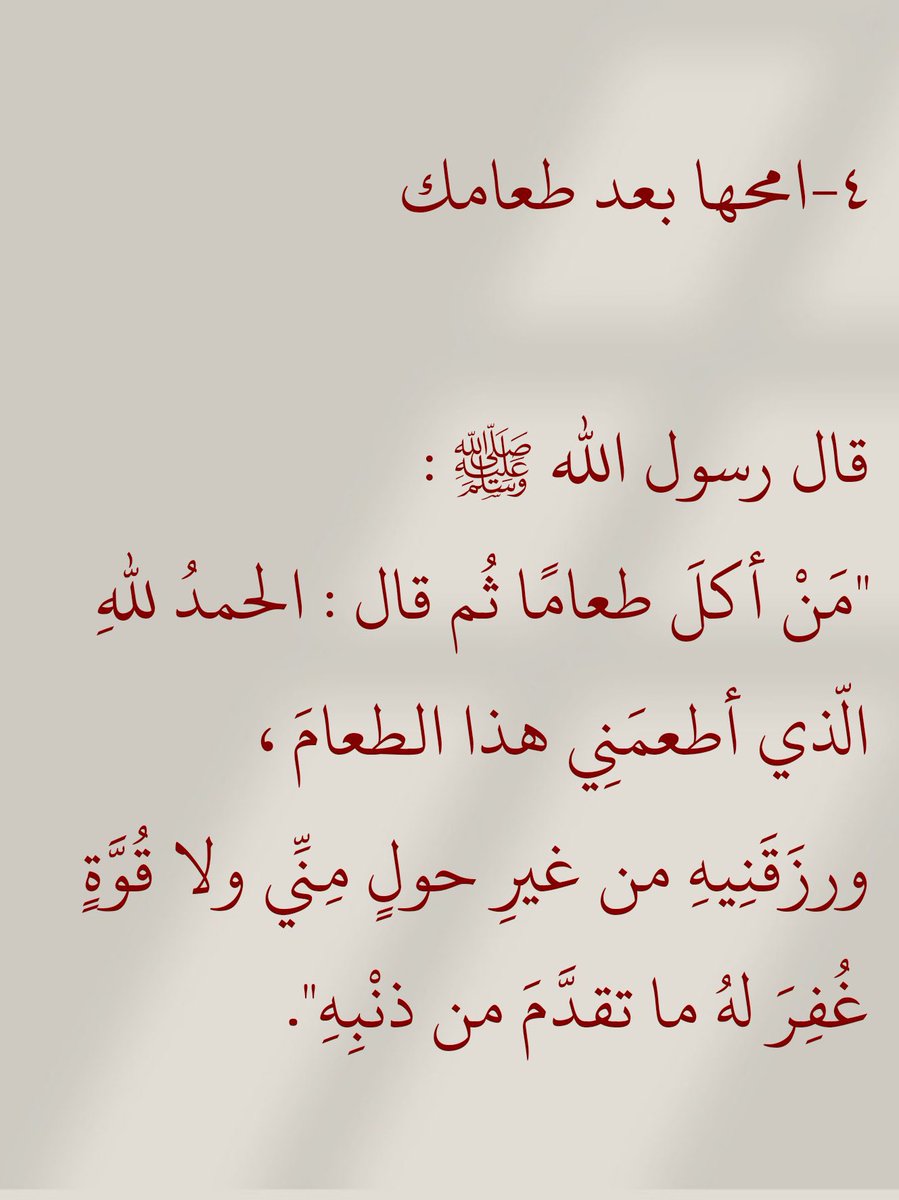 ٤-امحها بعد طعامك
قال رسول الله ﷺ :
"مَنْ أكلَ طعامًا ثُم قال : الحمدُ للهِ
الّذي أطعمَنِي هذا الطعامَ ،
ورزَقَنِيهِ من غيرِ حولٍ مِنِّي ولا قُوَّةٍ
غُفِرَ لهُ ما تقدَّمَ من ذنْبِهِ".